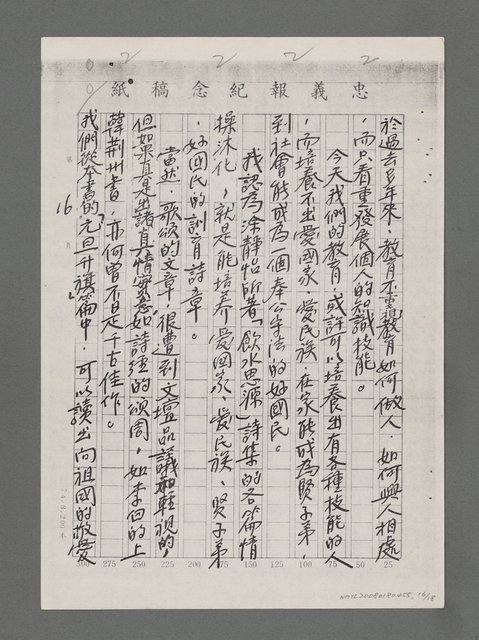 忠義報紀念稿紙
於過去多年來，教育不重視教育如何做人，如何與人相處
，而只看重發展個人的知識技能。
今天我們的教育，或許可以培養出有各種技能的人
，而培養不出愛國家、愛民族，在家能成為賢子弟，
到社會能成為一個奉公守法的好國民。
我認為涂靜怡所著「飲水思源」詩集的各篇情
操沐化，就是能培養愛國家、愛民族、賢子弟
、好國民的訓育詩章。
當然，歌頌的文章，很遭到文壇品議和輕視的
但如果真是出諸真情實意如詩經的頌周，如李白的上
韓荆州書，亦何曾不是千古佳作。
我們從本書的「元旦升旗」篇中，可以讀出向祖國的敬愛
16
25
50
75
100
125
150
175
200
225
250
275
300
74.8.200本
NMTL20080180455_16/18